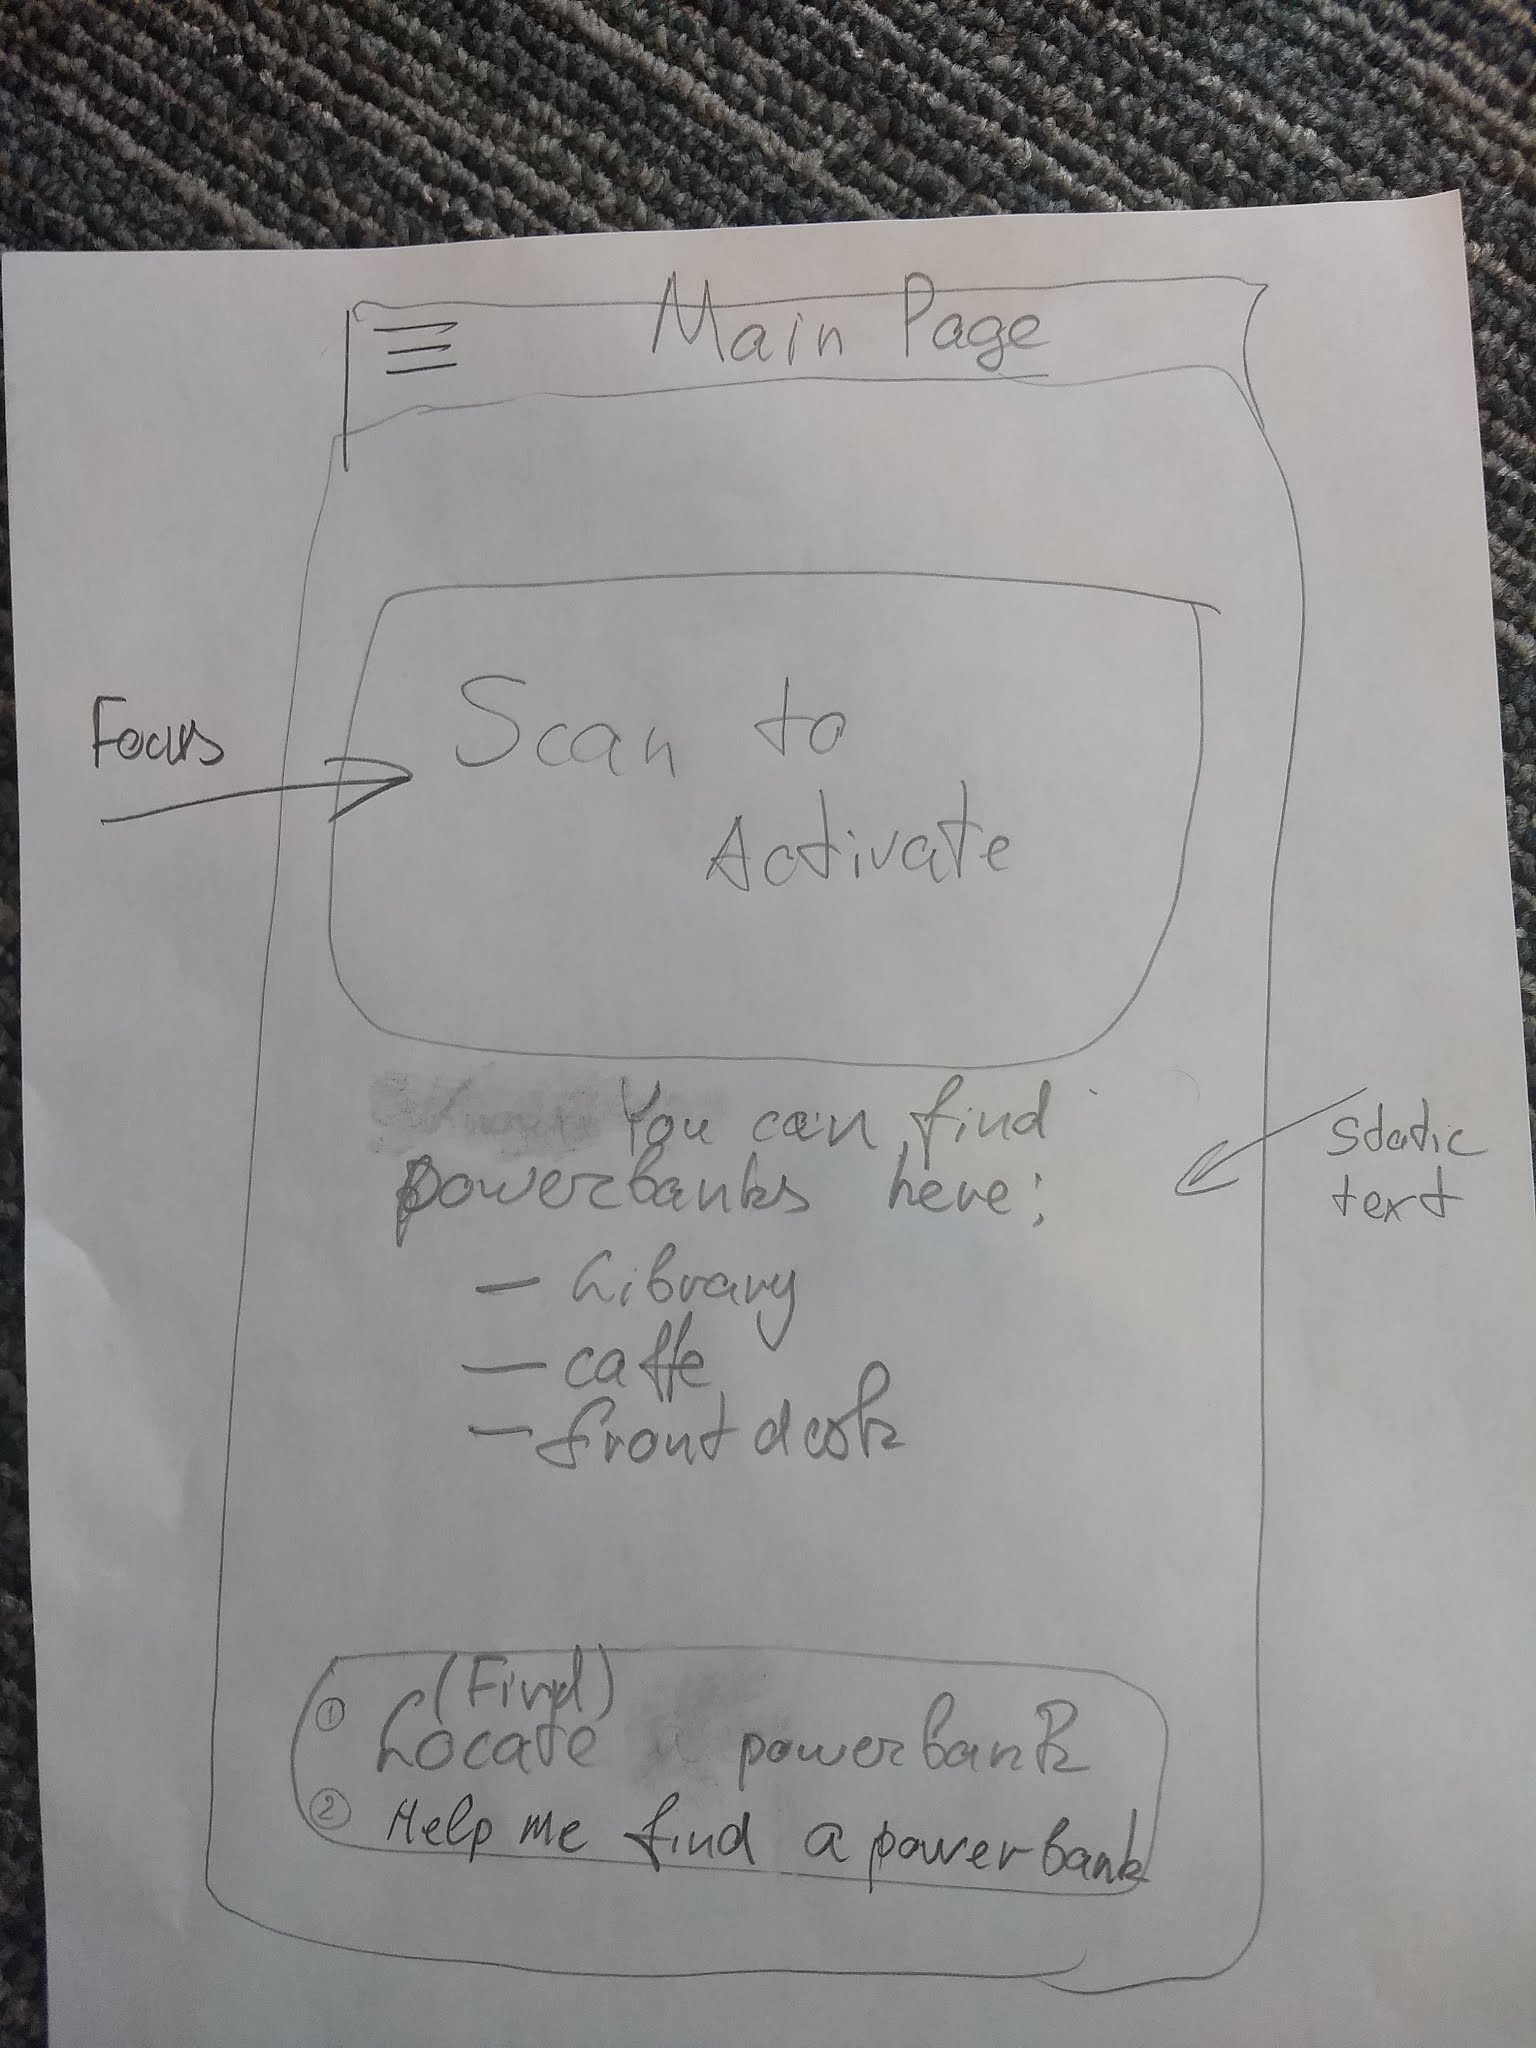 Main Page
Focus
Scan to
Activate
You can find
powerbanks here:
static
text
– Library
– caffe
– front desk
(Find)
① Locate powerbank
② Help me find a powerbank